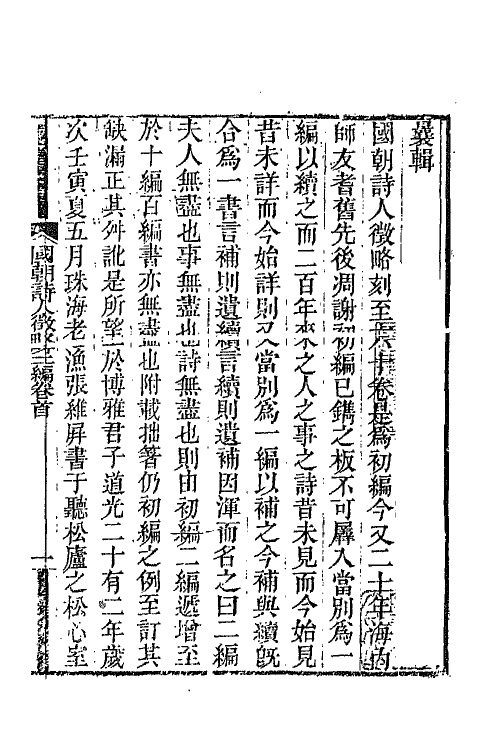 曩輯
國朝詩人徵略刻至六十卷是為初編今又二十年海内
師友耆舊先後凋謝初編已鐫之板不可羼入當別為一
編以續之而二百年來之人之事之詩昔未見而今始見
昔未詳而今始詳則又當別為一編以補之今補與續旣
合為一書言補則遺續言續則遺補因渾而名之曰二編
夫人無盡也事無盡也詩無盡也則由初編二編遞增至
於十編百編書亦無盡也附載拙箸仍初編之例至訂其
缺漏正其舛訛是所望於博雅君子道光二十有二年歲
次壬寅夏五月珠海老漁張維屏書于聽松廬之松心室
國朝詩人徵略二編卷首
一